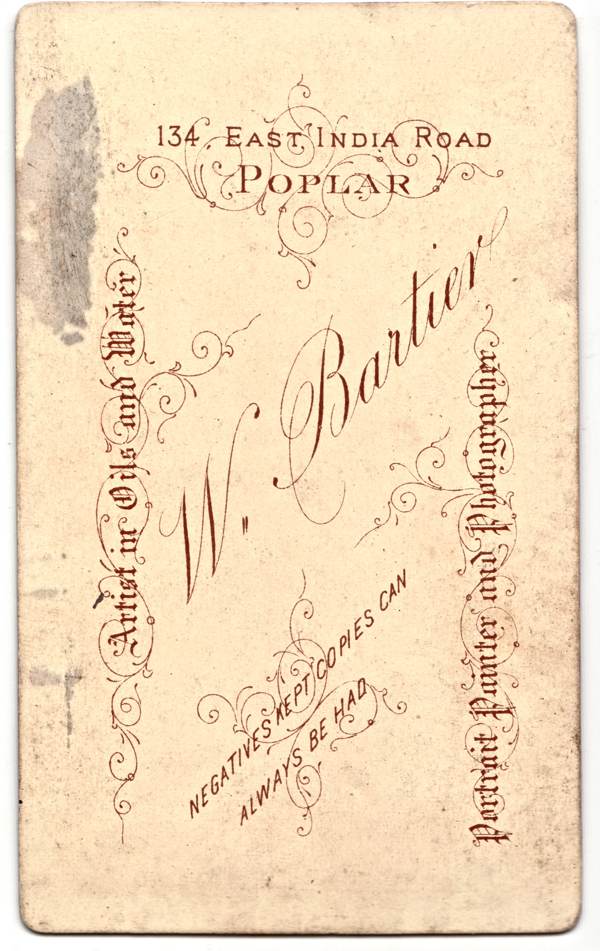 134, EAST INDIA ROAD
POPLAR
Artist in Oils and Water
W. Bartier
Portrait Painter and Photographer
NEGATIVES KEPT COPIES CAN
ALWAYS BE HAD